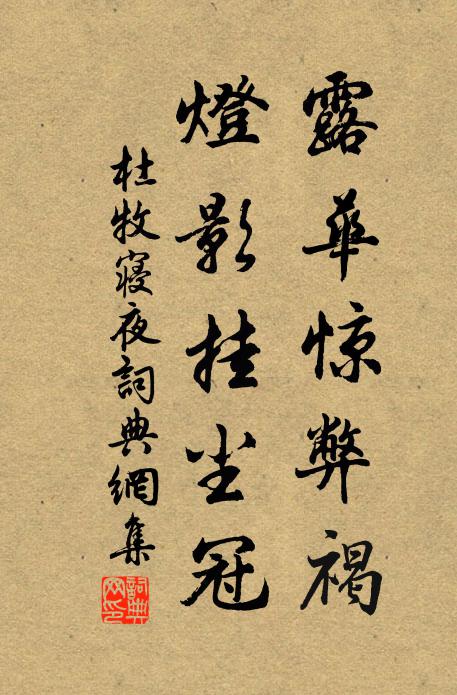 露華惊弊褐
燈影挂尘冠
杜牧寝夜詞典網集
詞典网印